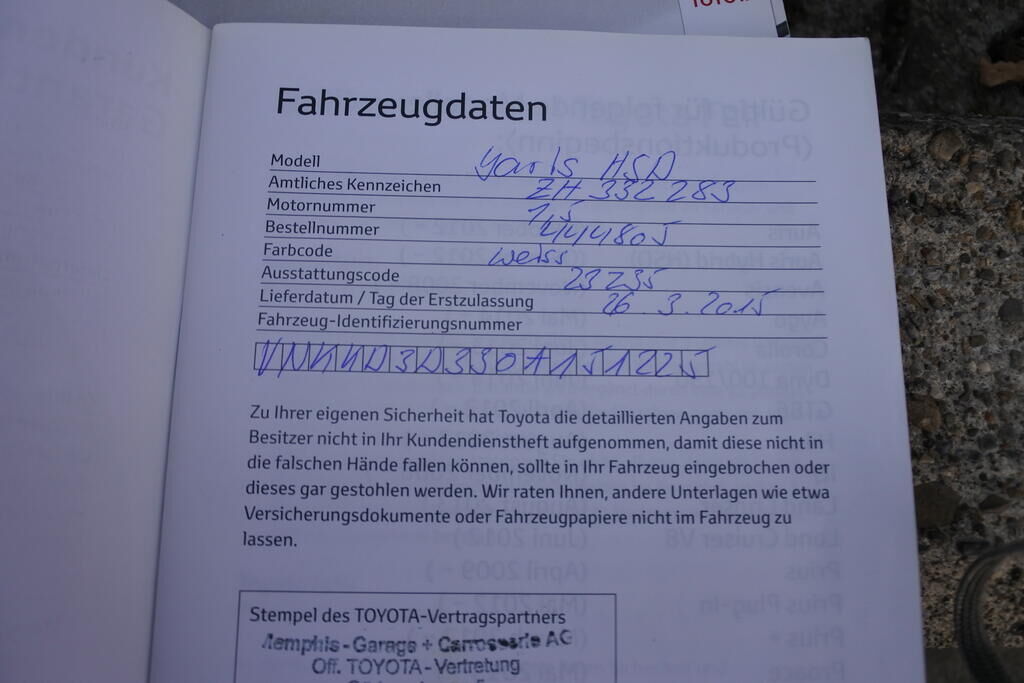 Fahrzeugdaten
Modell Yaris HSD
Amtliches Kennzeichen ZH 332 283
Motornummer 1,5
Bestellnummer 444805
Farbcode weiss
Ausstattungscode 23235
Lieferdatum / Tag der Erstzulassung 26.3.2015
Fahrzeug-Identifizierungsnummer
VNKKD3D330A151225
Zu Ihrer eigenen Sicherheit hat Toyota die detaillierten Angaben zum
Besitzer nicht in Ihr Kundendienstheft aufgenommen, damit diese nicht in
die falschen Hände fallen können, sollte in Ihr Fahrzeug eingebrochen oder
dieses gar gestohlen werden. Wir raten Ihnen, andere Unterlagen wie etwa
Versicherungsdokumente oder Fahrzeugpapiere nicht im Fahrzeug zu
lassen.
Stempel des TOYOTA-Vertragspartners
Memphis - Garage + Carrosserie AG
Off. TOYOTA - Vertretung